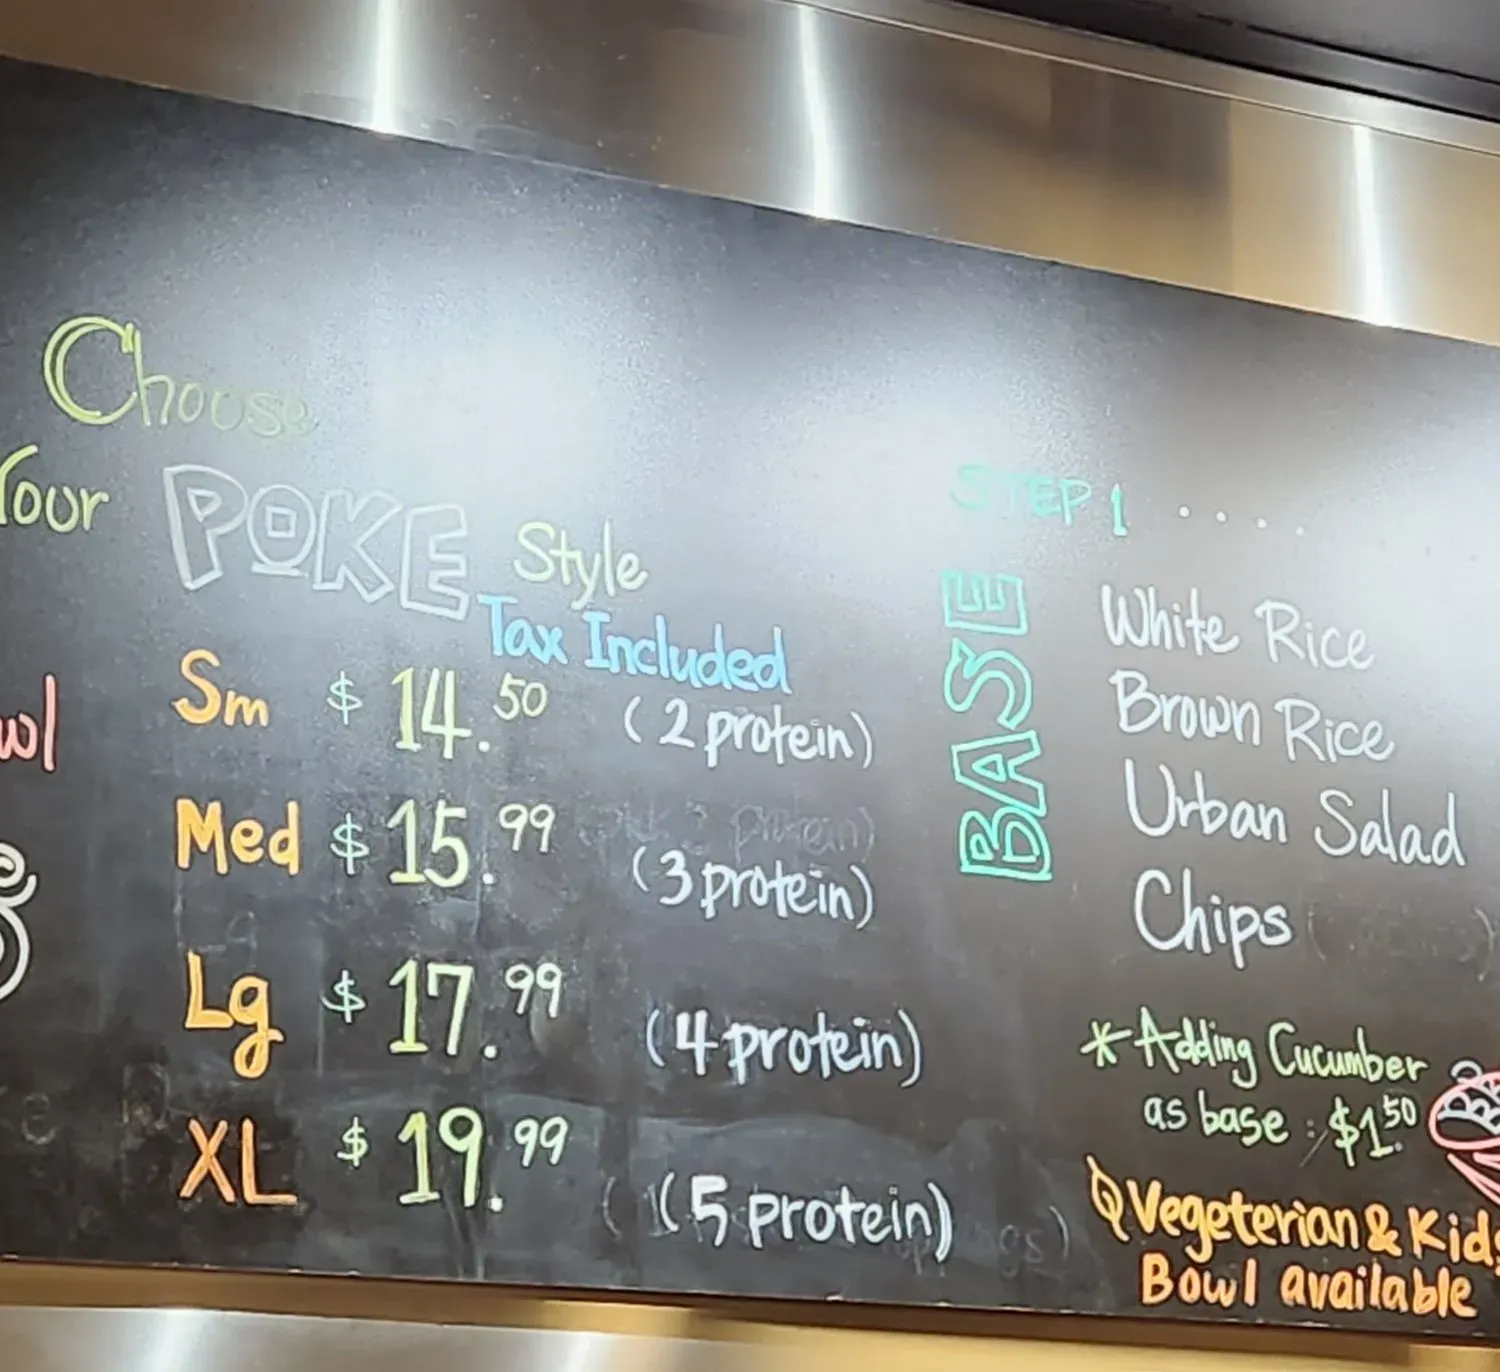 Choose
Your POKE Style
Tax Included
Sm $14.50 (2 protein)
Med $15.99 (3 protein)
Lg $17.99 (4 protein)
XL $19.99 (5 protein)
STEP 1 ....
BASE
White Rice
Brown Rice
Urban Salad
Chips
*Adding Cucumber
as base : $1.50
Vegeterian & Kids
Bowl available